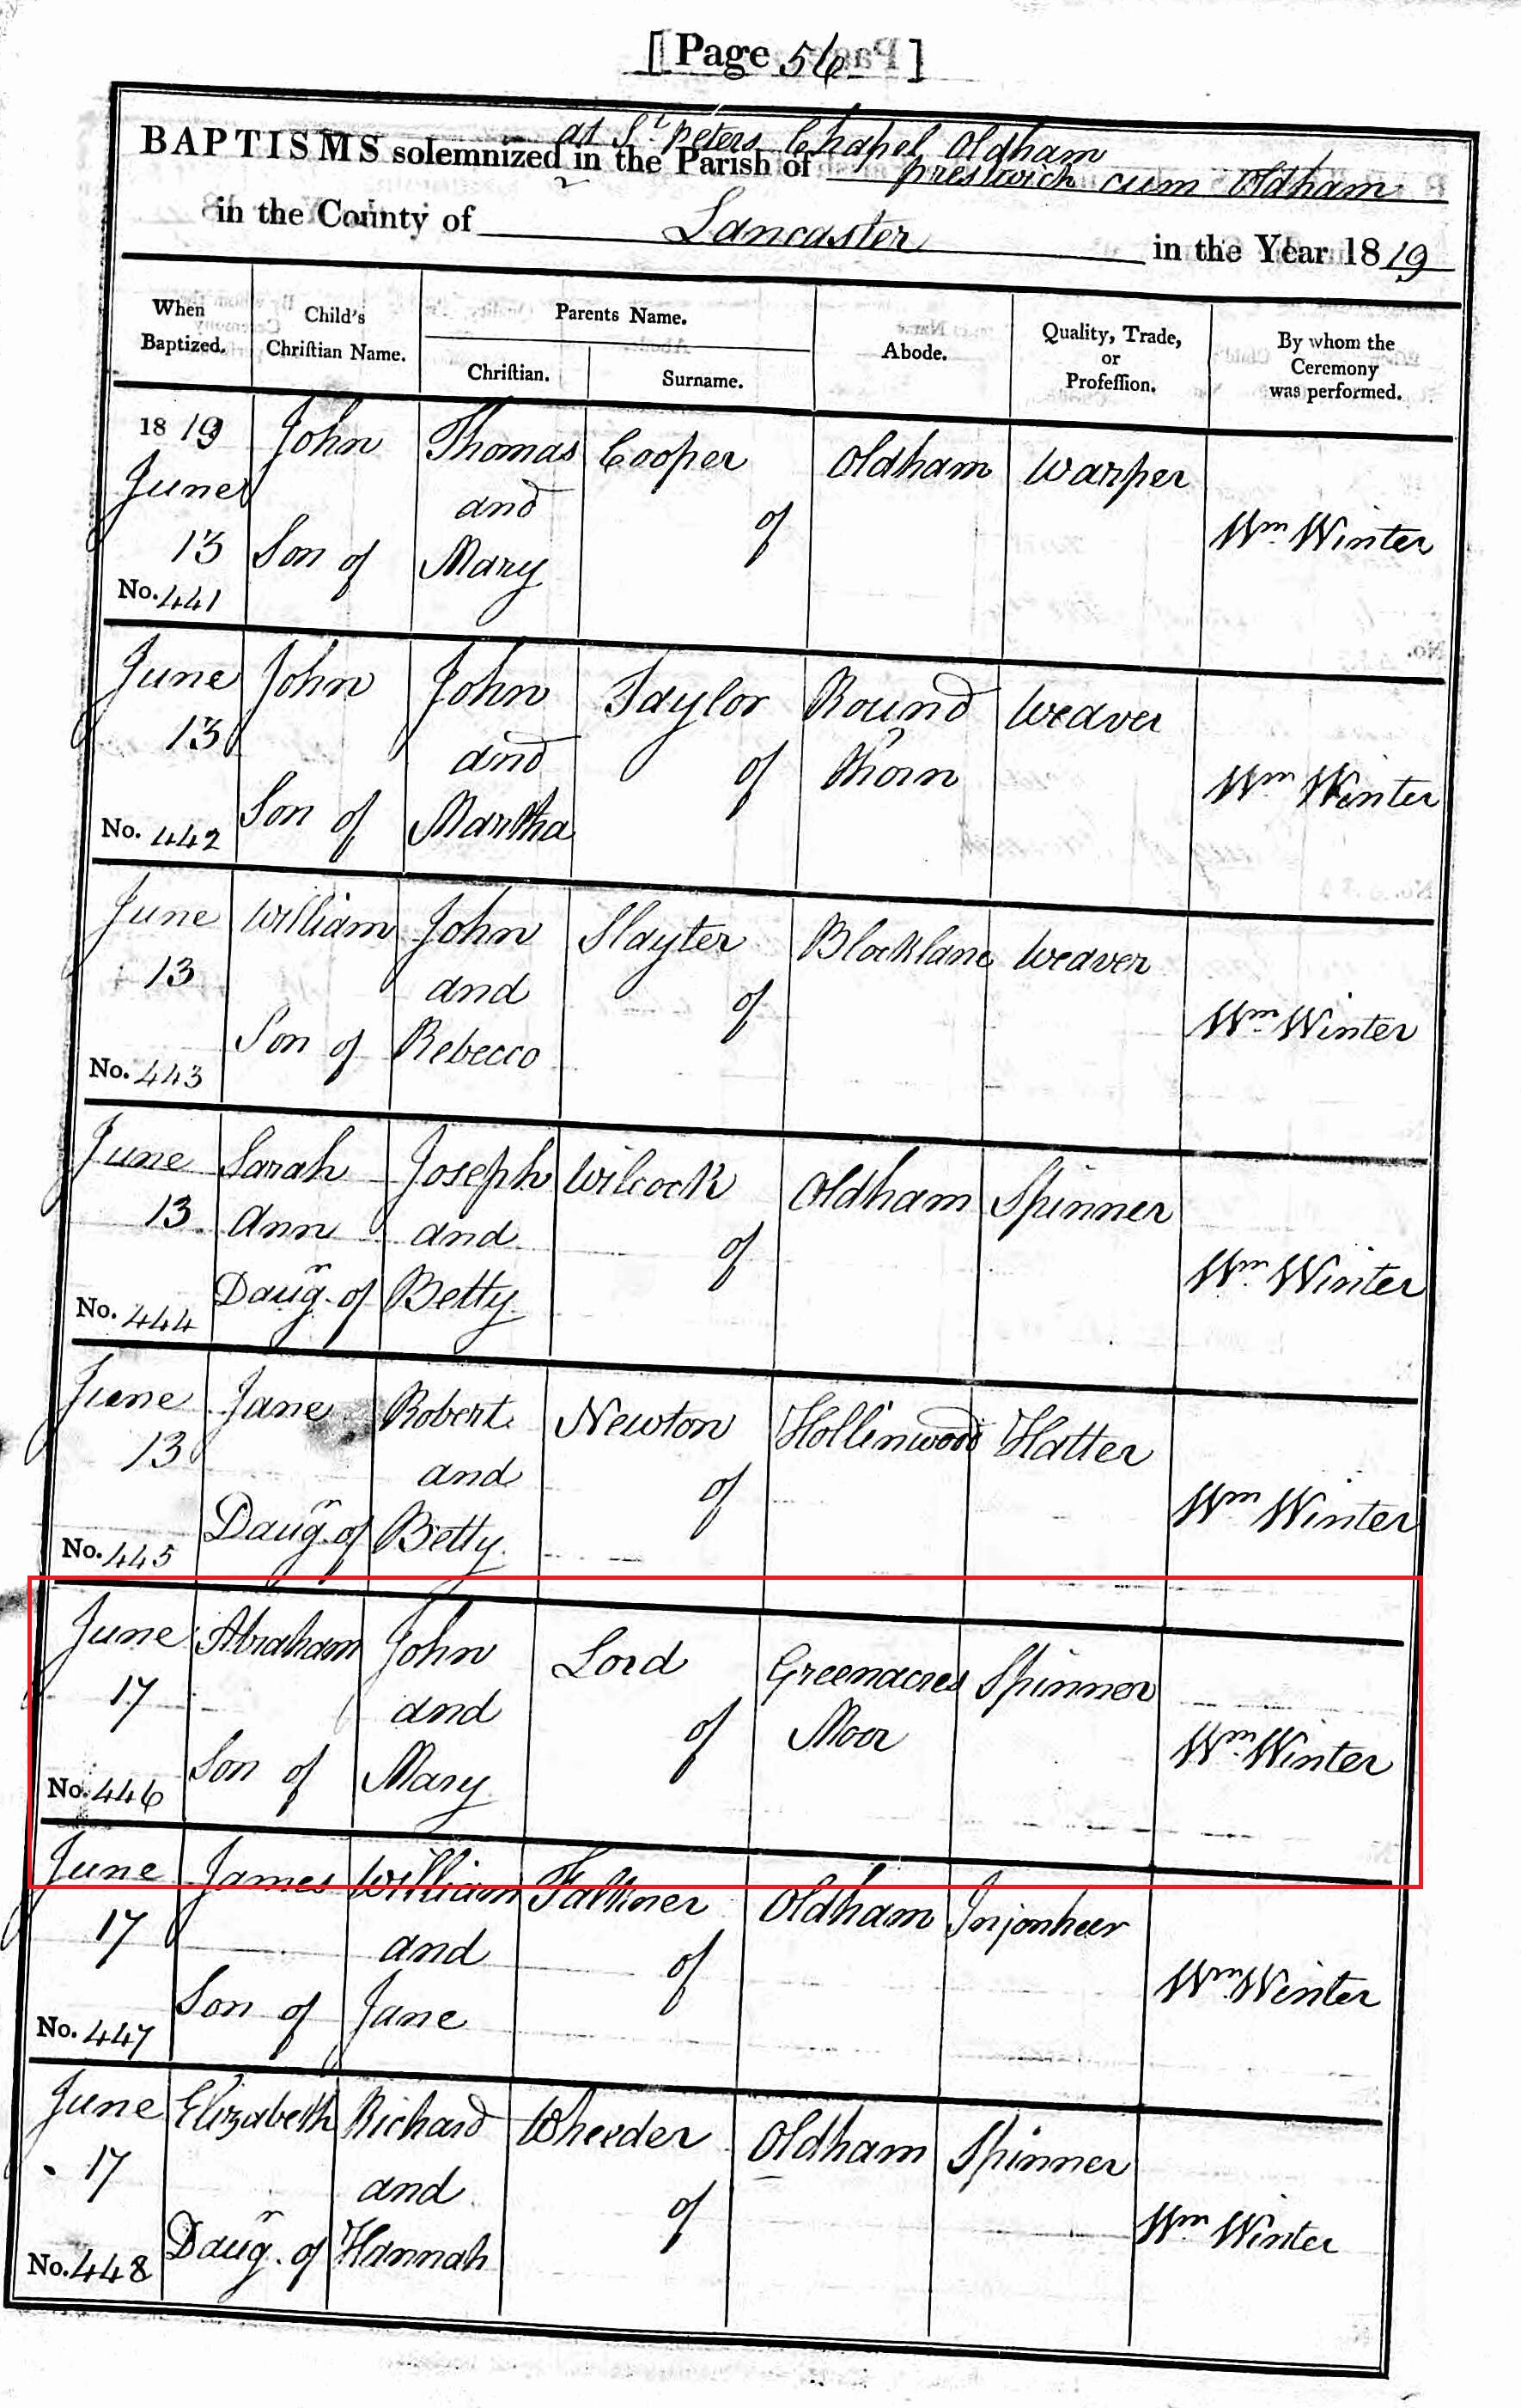 [ Page 56 ]
at St Peters Chapel Oldham
BAPTISMS solemnized in the Parish of prestwich cum Oldham
in the County of Lancaster in the Year 1819
When Baptized.
Child's Christian Name.
Parents Name.
Christian.
Surname.
Abode.
Quality, Trade, or Profession.
By whom the Ceremony was performed.
1819 John Thomas Cooper Oldham Warper
June and of
13 Son of Mary Wm Winter
No. 441
June John John Taylor Round Weaver
13 and of Thorn
Son of Martha Wm Winter
No. 442
June William John Slayter Blocklane Weaver
13 and of
Son of Rebecco Wm Winter
No. 443
June Sarah Joseph Wilcock Oldham Spinner
13 Ann and of
Daugr. of Betty Wm Winter
No. 444
June Jane Robert Newton Hollinwood Hatter
13 and of
Daugr. of Betty Wm Winter
No. 445
June Abraham John Lord Greenacres Spinner
17 and of Moor
Son of Mary Wm Winter
No. 446
June James William Falkner Oldham Injonheer
17 and of
Son of Jane Wm Winter
No. 447
June Elizabeth Richard Wheeder Oldham Spinner
17 and of
Daugr. of Hannah Wm Winter
No. 448